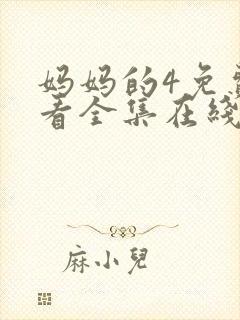 妈妈的4免
看全集在线
麻小兒